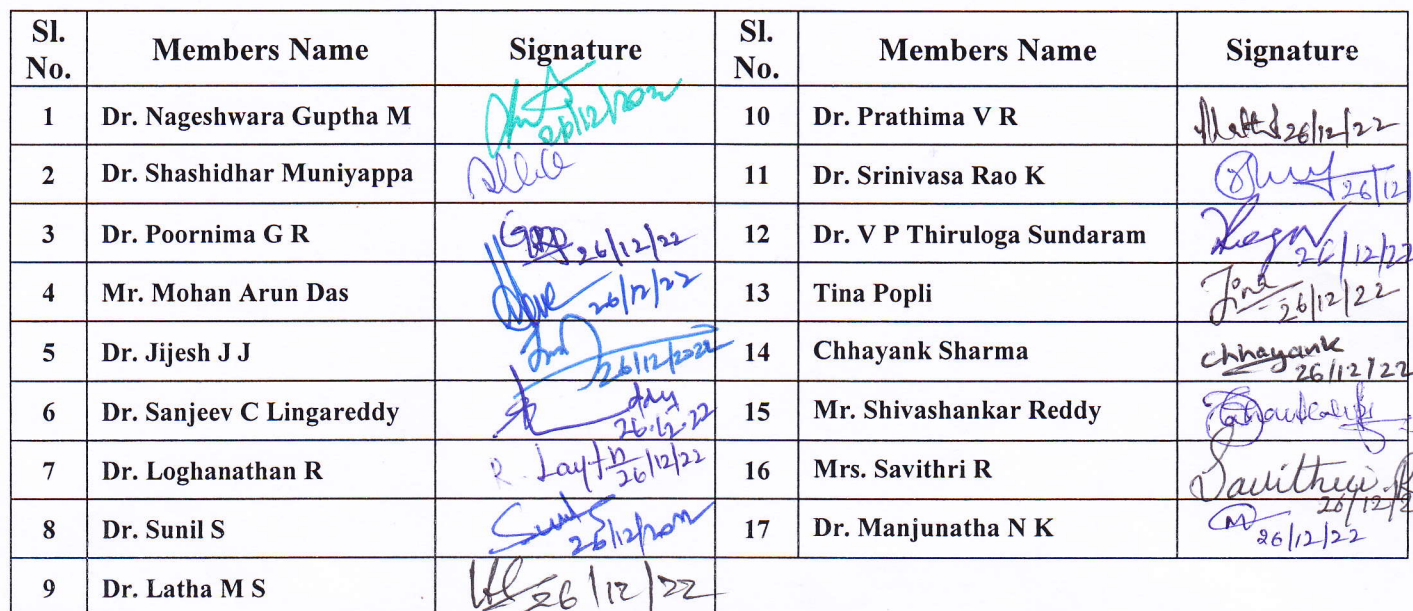 Sl. No. Members Name Signature Sl. No. Members Name Signature
1 Dr. Nageshwara Guptha M 26/12/2022 10 Dr. Prathima V R 26/12/22
2 Dr. Shashidhar Muniyappa 11 Dr. Srinivasa Rao K 26/12
3 Dr. Poornima G R 26/12/22 12 Dr. V P Thiruloga Sundaram 26/12/22
4 Mr. Mohan Arun Das 26/12/22 13 Tina Popli Tina 26/12/22
5 Dr. Jijesh J J 26/12/2022 14 Chhayank Sharma chhayank 26/12/22
6 Dr. Sanjeev C Lingareddy 26.12.22 15 Mr. Shivashankar Reddy
7 Dr. Loghanathan R 26/12/22 16 Mrs. Savithri R Savithri. R 26/12/2
8 Dr. Sunil S 26/12/2022 17 Dr. Manjunatha N K 26/12/22
9 Dr. Latha M S 26/12/22